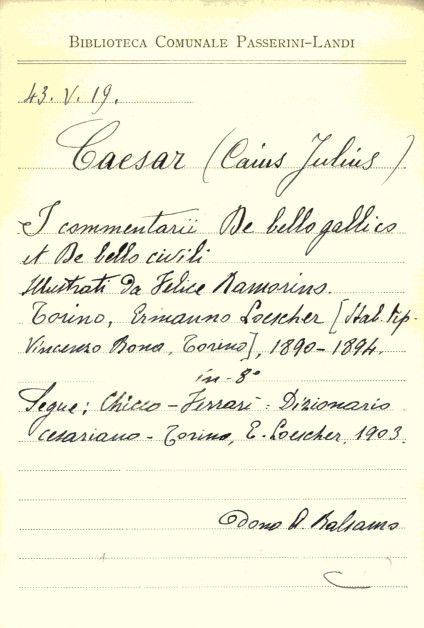 BIBLIOTECA COMUNALE PASSERINI-LANDI
43. V. 19.
Caesar (Caius Julius)
I commentarii De bello gallico
et De bello civili
Illustrati da Felice Ramorino.
Torino, Ermanno Loescher [Stab. tip.
Vincenzo Bona, Torino], 1890-1894.
in-8°
Segue: Chicco-Ferrari: Dizionario
cesariano - Torino, E. Loescher, 1903.
Dono A. Balsamo